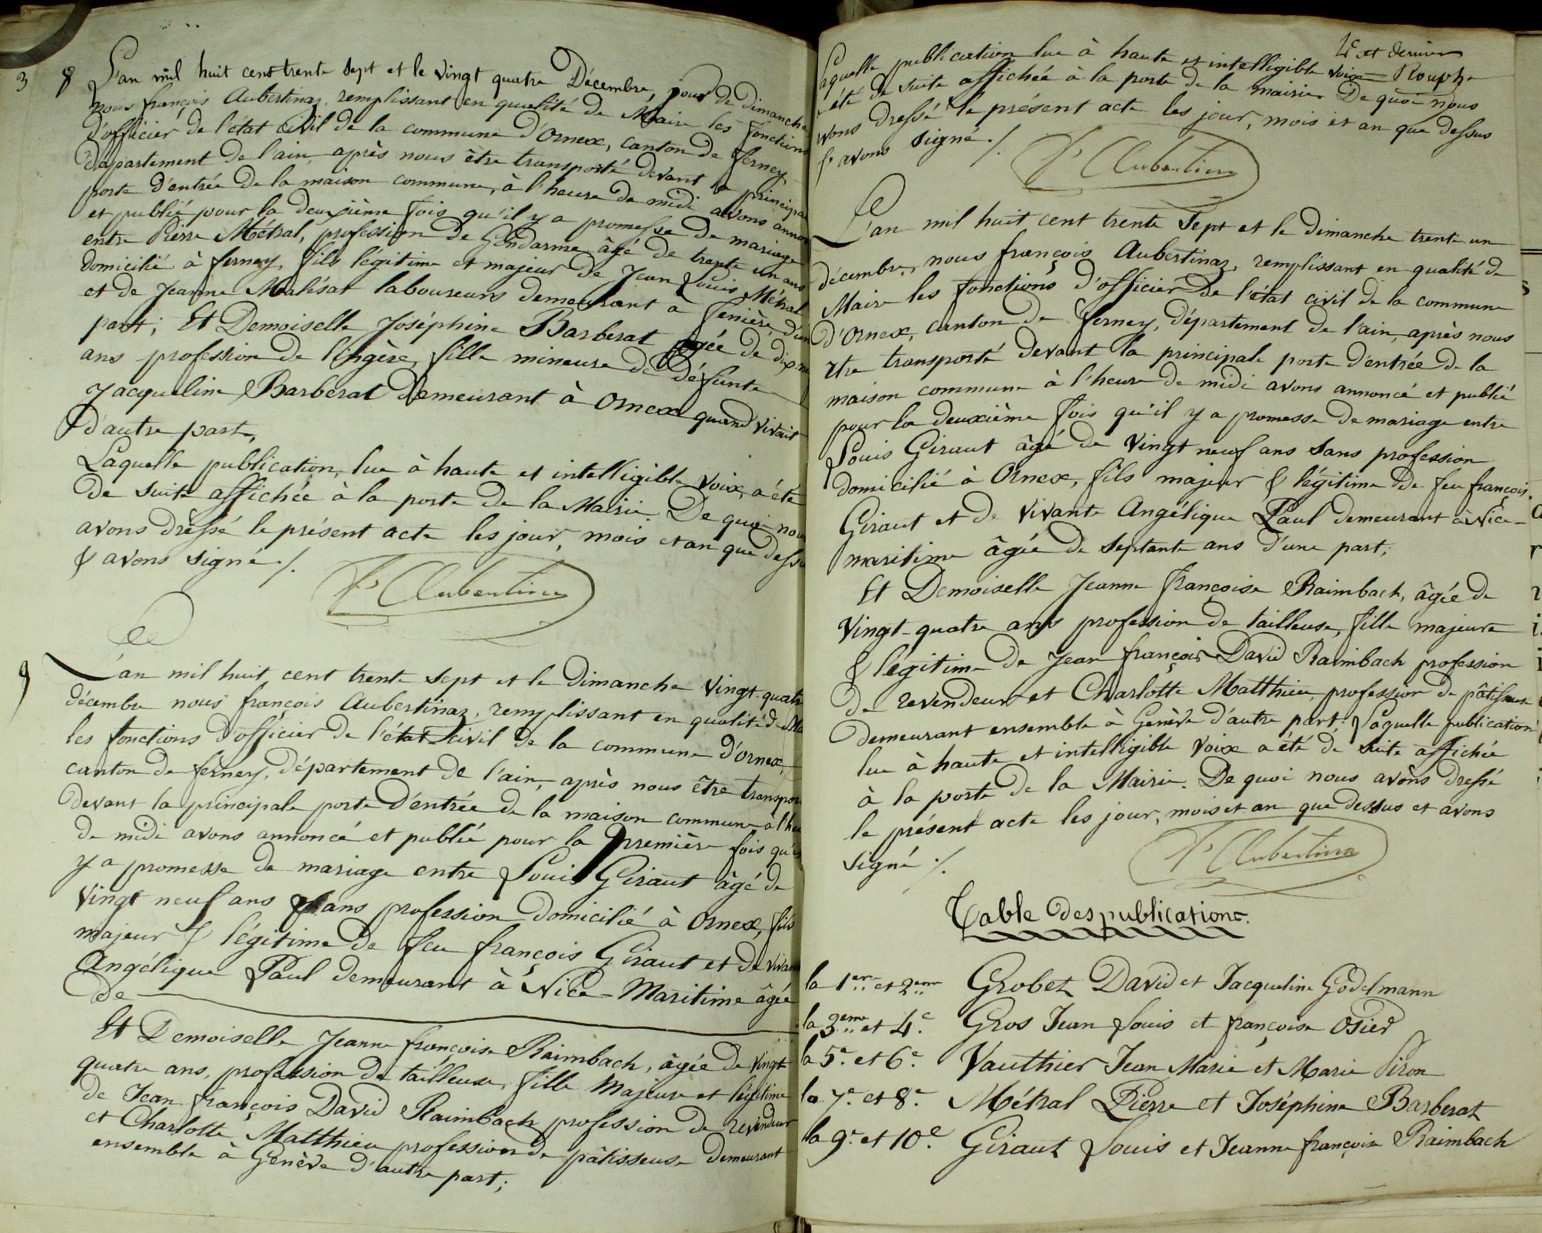 3 8 L'an mil huit cent trente sept et le vingt quatre Décembre, jour de dimanche
nous françois Aubertinaz, remplissant en qualité de Maire les fonctions
d'officier de l'état civil de la commune d'Ornex, canton de ferney
département de l'ain, après nous être transporté devant la principale
porte d'entrée de la maison commune, à l'heure de midi avons annon
et publié pour la deuxième fois qu'il y a promesse de mariage
entre Pierre Métral, profession de Gendarme âgé de trente un ans
domicilié à ferney, fils légitime et majeur de Jean Louis Métral
et de Jeanne laboureurs demeurant à d'un
part; Et Demoiselle Joséphine Barberat agée de dix
ans profession de lingère, fille mineure de défunte
Jacqueline Barberat demeurant à Ornex quand vivait
d'autre part,
Laquelle publication, lue à haute et intelligible voix, a été
de suite affichée à la porte de la Mairie. De quoi nous
avons dressé le présent acte les jour, mois et an que dessu
& avons signé ./.
F. Aubertinaz
9 L'an mil huit cent trente sept et le dimanche vingt quatre
décembre nous françois Aubertinaz, remplissant en qualité de Ma
les fonctions d'officier de l'état civil de la commune d'Ornex,
canton de ferney, département de l'ain, après nous être transpor
devant la principale porte d'entrée de la maison commune à l'heu
de midi avons annoncé et publié pour la première fois qu'il
y a promesse de mariage entre Louis Giraut âgé de
vingt neuf ans sans profession domicilié à Ornex, fils
majeur & légitime de feu françois Giraut et de viva
Angélique Paul demeurant à Nice-Maritime âgée
de
Et Demoiselle Jeanne françoise Raimbach, âgée de vingt
quatre ans, profession de tailleuse, fille Majeure et légitime
de Jean françois David Raimbach profession de revendeur
et Charlotte Matthieu profession de pâtisseuse demeurant
ensemble à Genève d'autre part;
4e et dernier
Laquelle publication lue à haute et intelligible voix
été de suite affichée à la porte de la mairie. De quoi nous
avons dressé le présent acte les jour, mois et an que dessus
& avons signé ./.
F. Aubertinaz
L'an mil huit cent trente sept et le dimanche trente un
décembre, nous françois Aubertinaz, remplissant en qualité de
Maire les fonctions d'officier de l'état civil de la commune
d'Ornex, canton de ferney, département de l'ain, après nous
être transporté devant la principale porte d'entrée de la
maison commune à l'heure de midi avons annoncé et publié
pour la deuxième fois qu'il y a promesse de mariage entre
Louis Giraut âgé de vingt neuf ans sans profession
domicilié à Ornex, fils majeur & légitime de feu françois
Giraut et de vivante Angélique Paul demeurant à Nice-
maritime âgée de septante ans d'une part;
Et Demoiselle Jeanne françoise Raimbach, âgée de
vingt-quatre ans profession de tailleuse, fille majeure
& légitime de Jean françois David Raimbach profession
de revendeur et Charlotte Matthieu, profession de pâtisseuse
demeurant ensemble à Genève d'autre part. Laquelle publication
lue à haute et intelligible voix a été de suite affichée
à la porte de la Mairie. De quoi nous avons dressé
le présent acte les jour, mois et an que dessus et avons
signé ./.
F. Aubertinaz
Table des publications.
la 1ere et 2eme Grobet David et Jacqueline Godelmann
la 3eme et 4e Gros Jean Louis et françoise Osier
la 5e et 6e Vauthier Jean Marie et Marie Piron
la 7e et 8e Métral Pierre et Joséphine Barberat
la 9e et 10e Giraut Louis et Jeanne françoise Raimbach